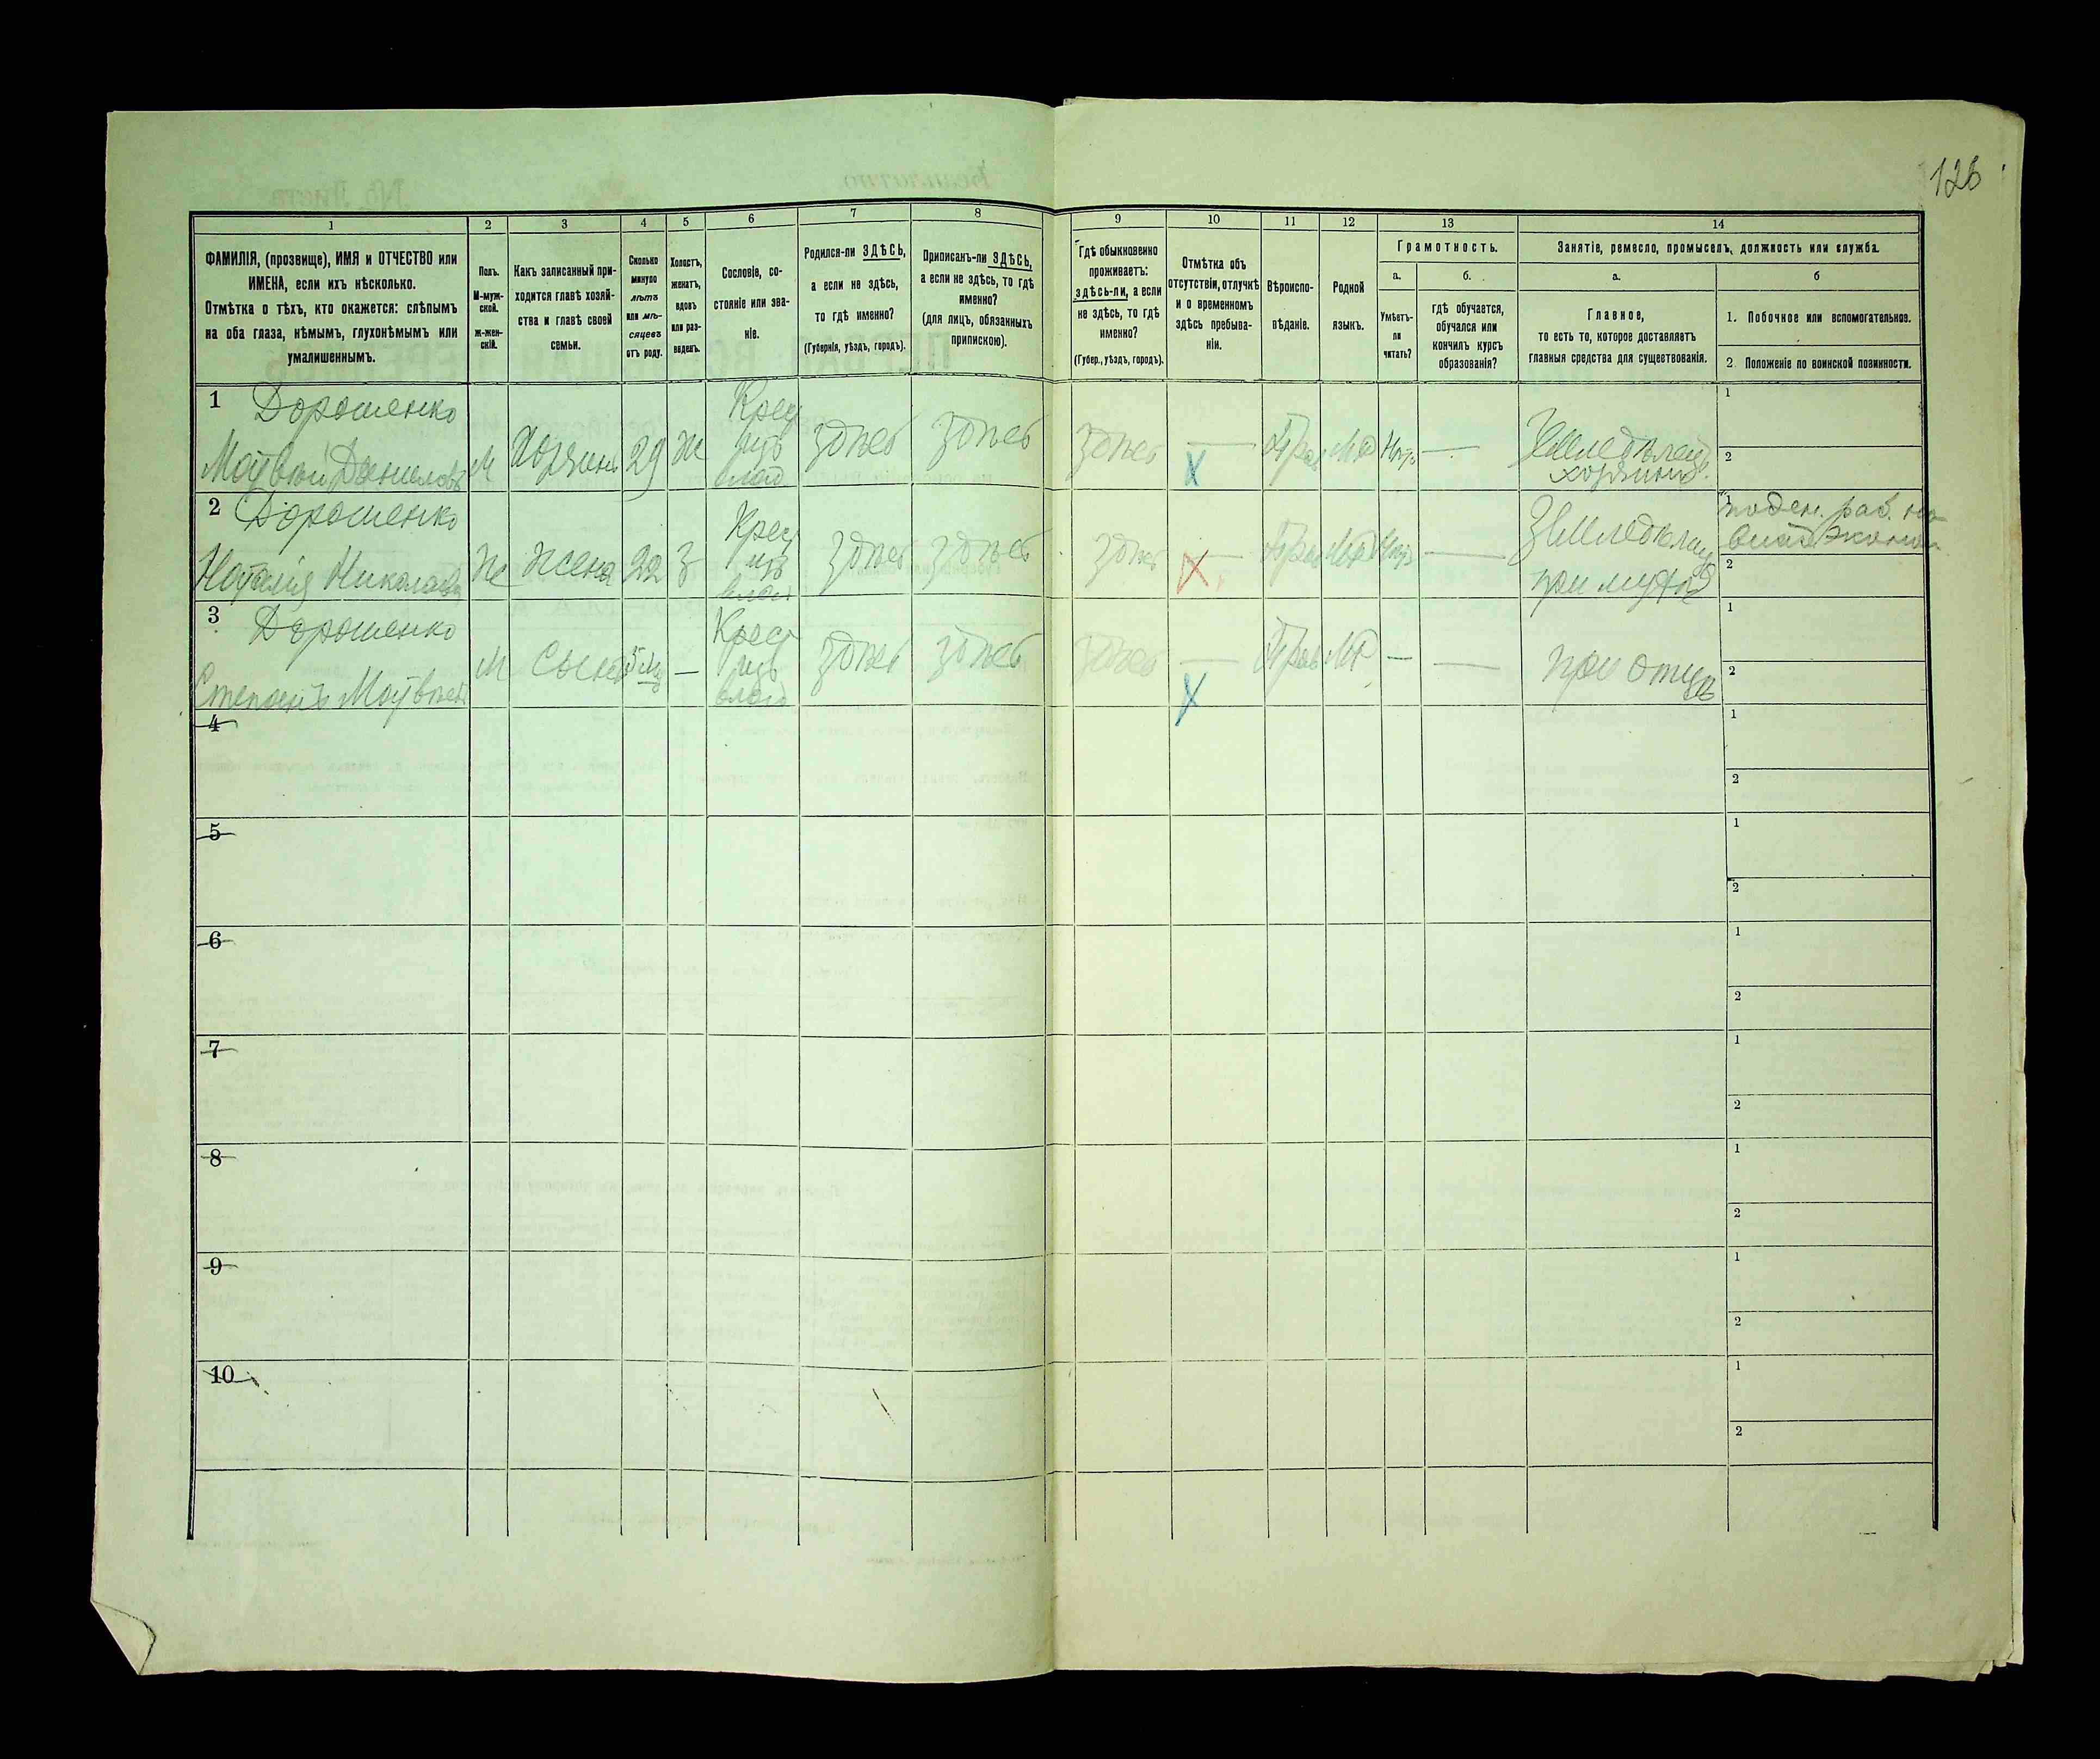 126
1 2 3 4 5 6 7 8 9 10 11 12 13 14
ФАМИЛІЯ, (прозвище), ИМЯ и ОТЧЕСТВО или
ИМЕНА, если ихъ нѣсколько.
Отмѣтка о тѣхъ, кто окажется: слѣпымъ
на оба глаза, нѣмымъ, глухонѣмымъ или
умалишеннымъ.
Полъ.
М-муж-
ской.
ж-жен-
скій.
Какъ записанный при-
ходится главѣ хозяй-
ства и главѣ своей
семьи.
Сколько
минуло
лѣтъ
или мѣ-
сяцевъ
отъ роду.
Холостъ,
женатъ,
вдовъ
или раз-
веденъ.
Сословіе, со-
стояніе или зва-
ніе.
Родился-ли ЗДѢСЬ,
а если не здѣсь,
то гдѣ именно?
(Губернія, уѣздъ, городъ).
Приписанъ-ли ЗДѢСЬ,
а если не здѣсь, то гдѣ
именно?
(для лицъ, обязанныхъ
припискою).
Гдѣ обыкновенно
проживаетъ:
здѣсь-ли, а если
не здѣсь, то гдѣ
именно?
(Губер., уѣздъ, городъ).
Отмѣтка объ
отсутствіи, отлучкѣ
и о временномъ
здѣсь пребыва-
ніи.
Вѣроиспо-
вѣданіе.
Родной
языкъ.
Грамотность.
а.
Умѣетъ-
ли
читать?
б.
гдѣ обучается,
обучался или
кончилъ курсъ
образованія?
Занятіе, ремесло, промыселъ, должность или служба.
а.
Главное,
то есть то, которое доставляетъ
главныя средства для существованія.
б
1. Побочное или вспомогательное.
2. Положеніе по воинской повинности.
1 Дорошенко
Матвѣй Даниловъ М Хозяинъ 29 Ж Крест изъ влад здѣсь здѣсь здѣсь — Х Прав МР Нѣтъ — Земледѣлецъ хозяинъ. 1 2
2 Дорошенко
Наталія Николаева Ж Жена 22 З Крест изъ влад здѣсь здѣсь здѣсь — Х Прав МР Нѣтъ — Земледѣлец при мужѣ 1 поден. раб. на
эконом 2
3 Дорошенко
Степанъ Матвѣев М Сынъ 5 М — Крест изъ влад здѣсь здѣсь здѣсь — Х Прав МР — — при отцѣ 1 2
4 1 2
5 1 2
6 1 2
7 1 2
8 1 2
9 1 2
10 1 2